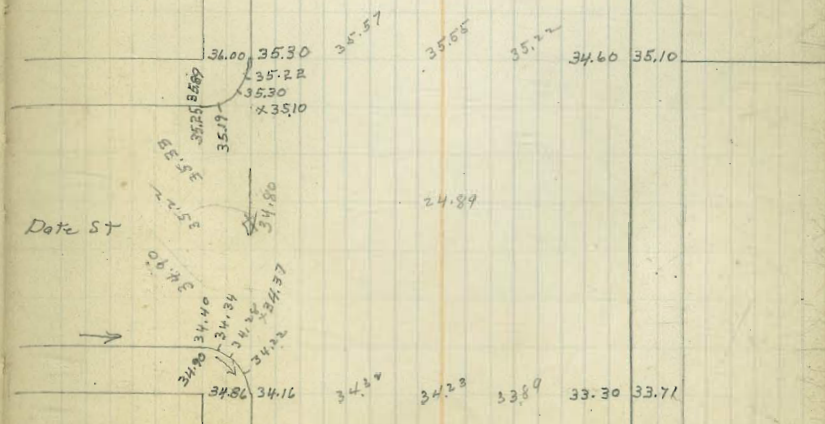 36.00 35.30 35.57 35.55 35.22 34.60 35.10
35.22
35.30
35.25 35.89
x35.10
35.19
35.33
35.22
34.80
24.89
Date St
34.90
34.40
34.34
34.28
x34.37
34.90
34.22
34.86 34.16 34.32 34.23 33.89 33.30 33.71